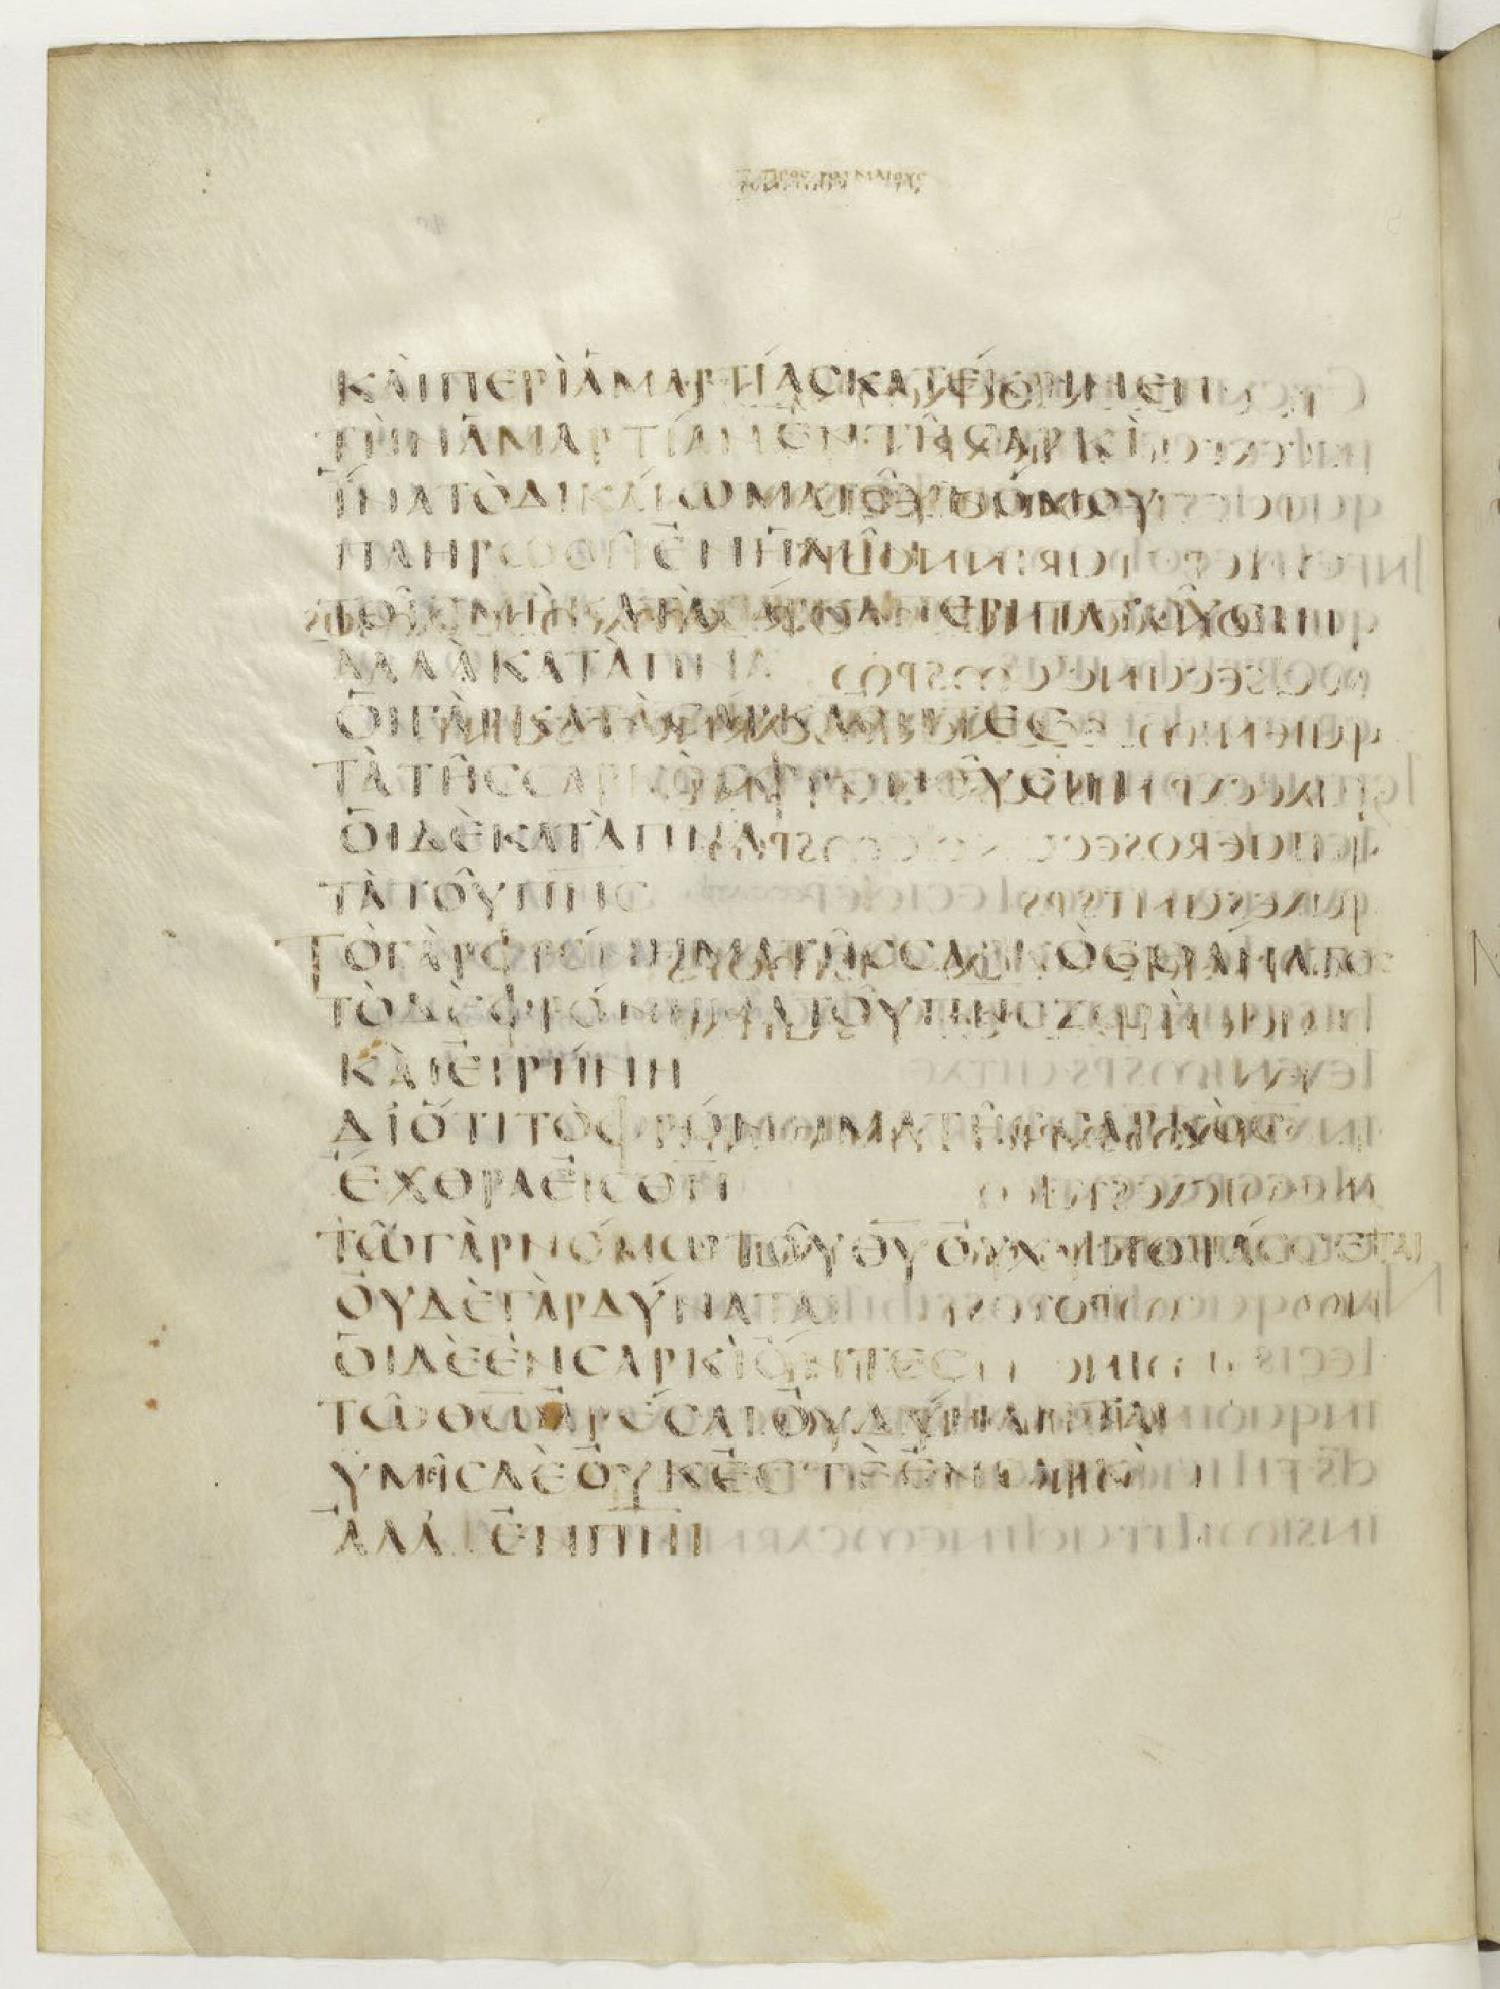 ΚΑΙΠΕΡΙΑΜΑΡΤΙΑΣΚΑΤΕΚΡΙΝΕΝ
ΤΗΝΑΜΑΡΤΙΑΝΕΝΤΗΣΑΡΚΙ
ΙΝΑΤΟΔΙΚΑΙΩΜΑΤΟΥΝΟΜΟΥ
ΠΛΗΡΩΘΗΕΝΗΜΙΝ
ΤΟΙΣΜΗΚΑΤΑΣΑΡΚΑΠΕΡΙΠΑΤΟΥΣΙΝ
ΑΛΛΑΚΑΤΑΠΝΑ
ΟΙΓΑΡΚΑΤΑΣΑΡΚΑΟΝΤΕΣ
ΤΑΤΗΣΣΑΡΚΟΣΦΡΟΝΟΥΣΙΝ
ΟΙΔΕΚΑΤΑΠΝΑ
ΤΑΤΟΥΠΝΣ
ΤΟΓΑΡΦΡΟΝΗΜΑΤΗΣΣΑΡΚΟΣΘΑΝΑΤΟΣ
ΤΟΔΕΦΡΟΝΗΜΑΤΟΥΠΝΣΖΩΗ
ΚΑΙΕΙΡΗΝΗ
ΔΙΟΤΙΤΟΦΡΟΝΗΜΑΤΗΣΣΑΡΚΟΣ
ΕΧΘΡΑΕΙΣΘΝ
ΤΩΓΑΡΝΟΜΩΤΟΥΘΥΟΥΧΥΠΟΤΑΣΣΕΤΑΙ
ΟΥΔΕΓΑΡΔΥΝΑΤΑΙ
ΟΙΔΕΕΝΣΑΡΚΙΟΝΤΕΣ
ΤΩΘΩΑΡΕΣΑΙΟΥΔΥΝΑΝΤΑΙ
ΥΜΙΣΔΕΟΥΚΕΣΤΕΕΝΣΑΡΚΙ
ΑΛΛΕΝΠΝΙ